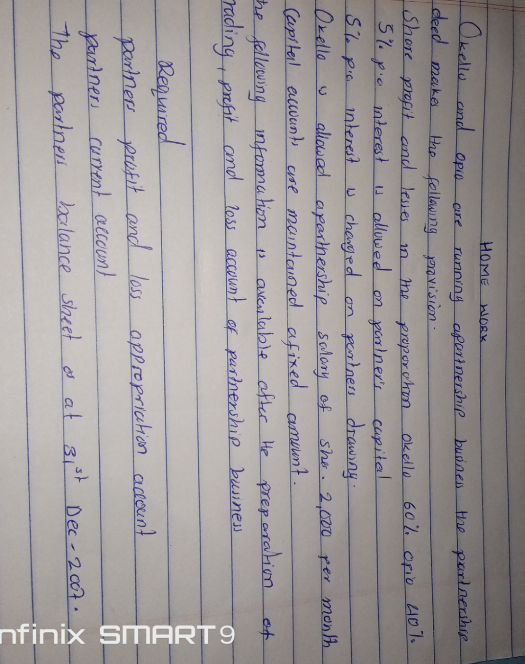 HOME WORK
Okello and opio are running apartnership business the partnership
deed makes the following provision.
Share profit and losses in the proporation Okello 60% opio 40%
5% p.a interest is allowed on partner's capital
5% p.a interest is charged on partners drawing.
Okello is allowed apartnership salary of shs. 2,000 per month
Capital account are maintained afixed amount.
the following information is available after the preparation of
trading, profit and loss account of partnership business
Required
partners profit and loss appropriation account
partners current account
The partners balance sheet as at 31st Dec-2007.
nfinix SMART9